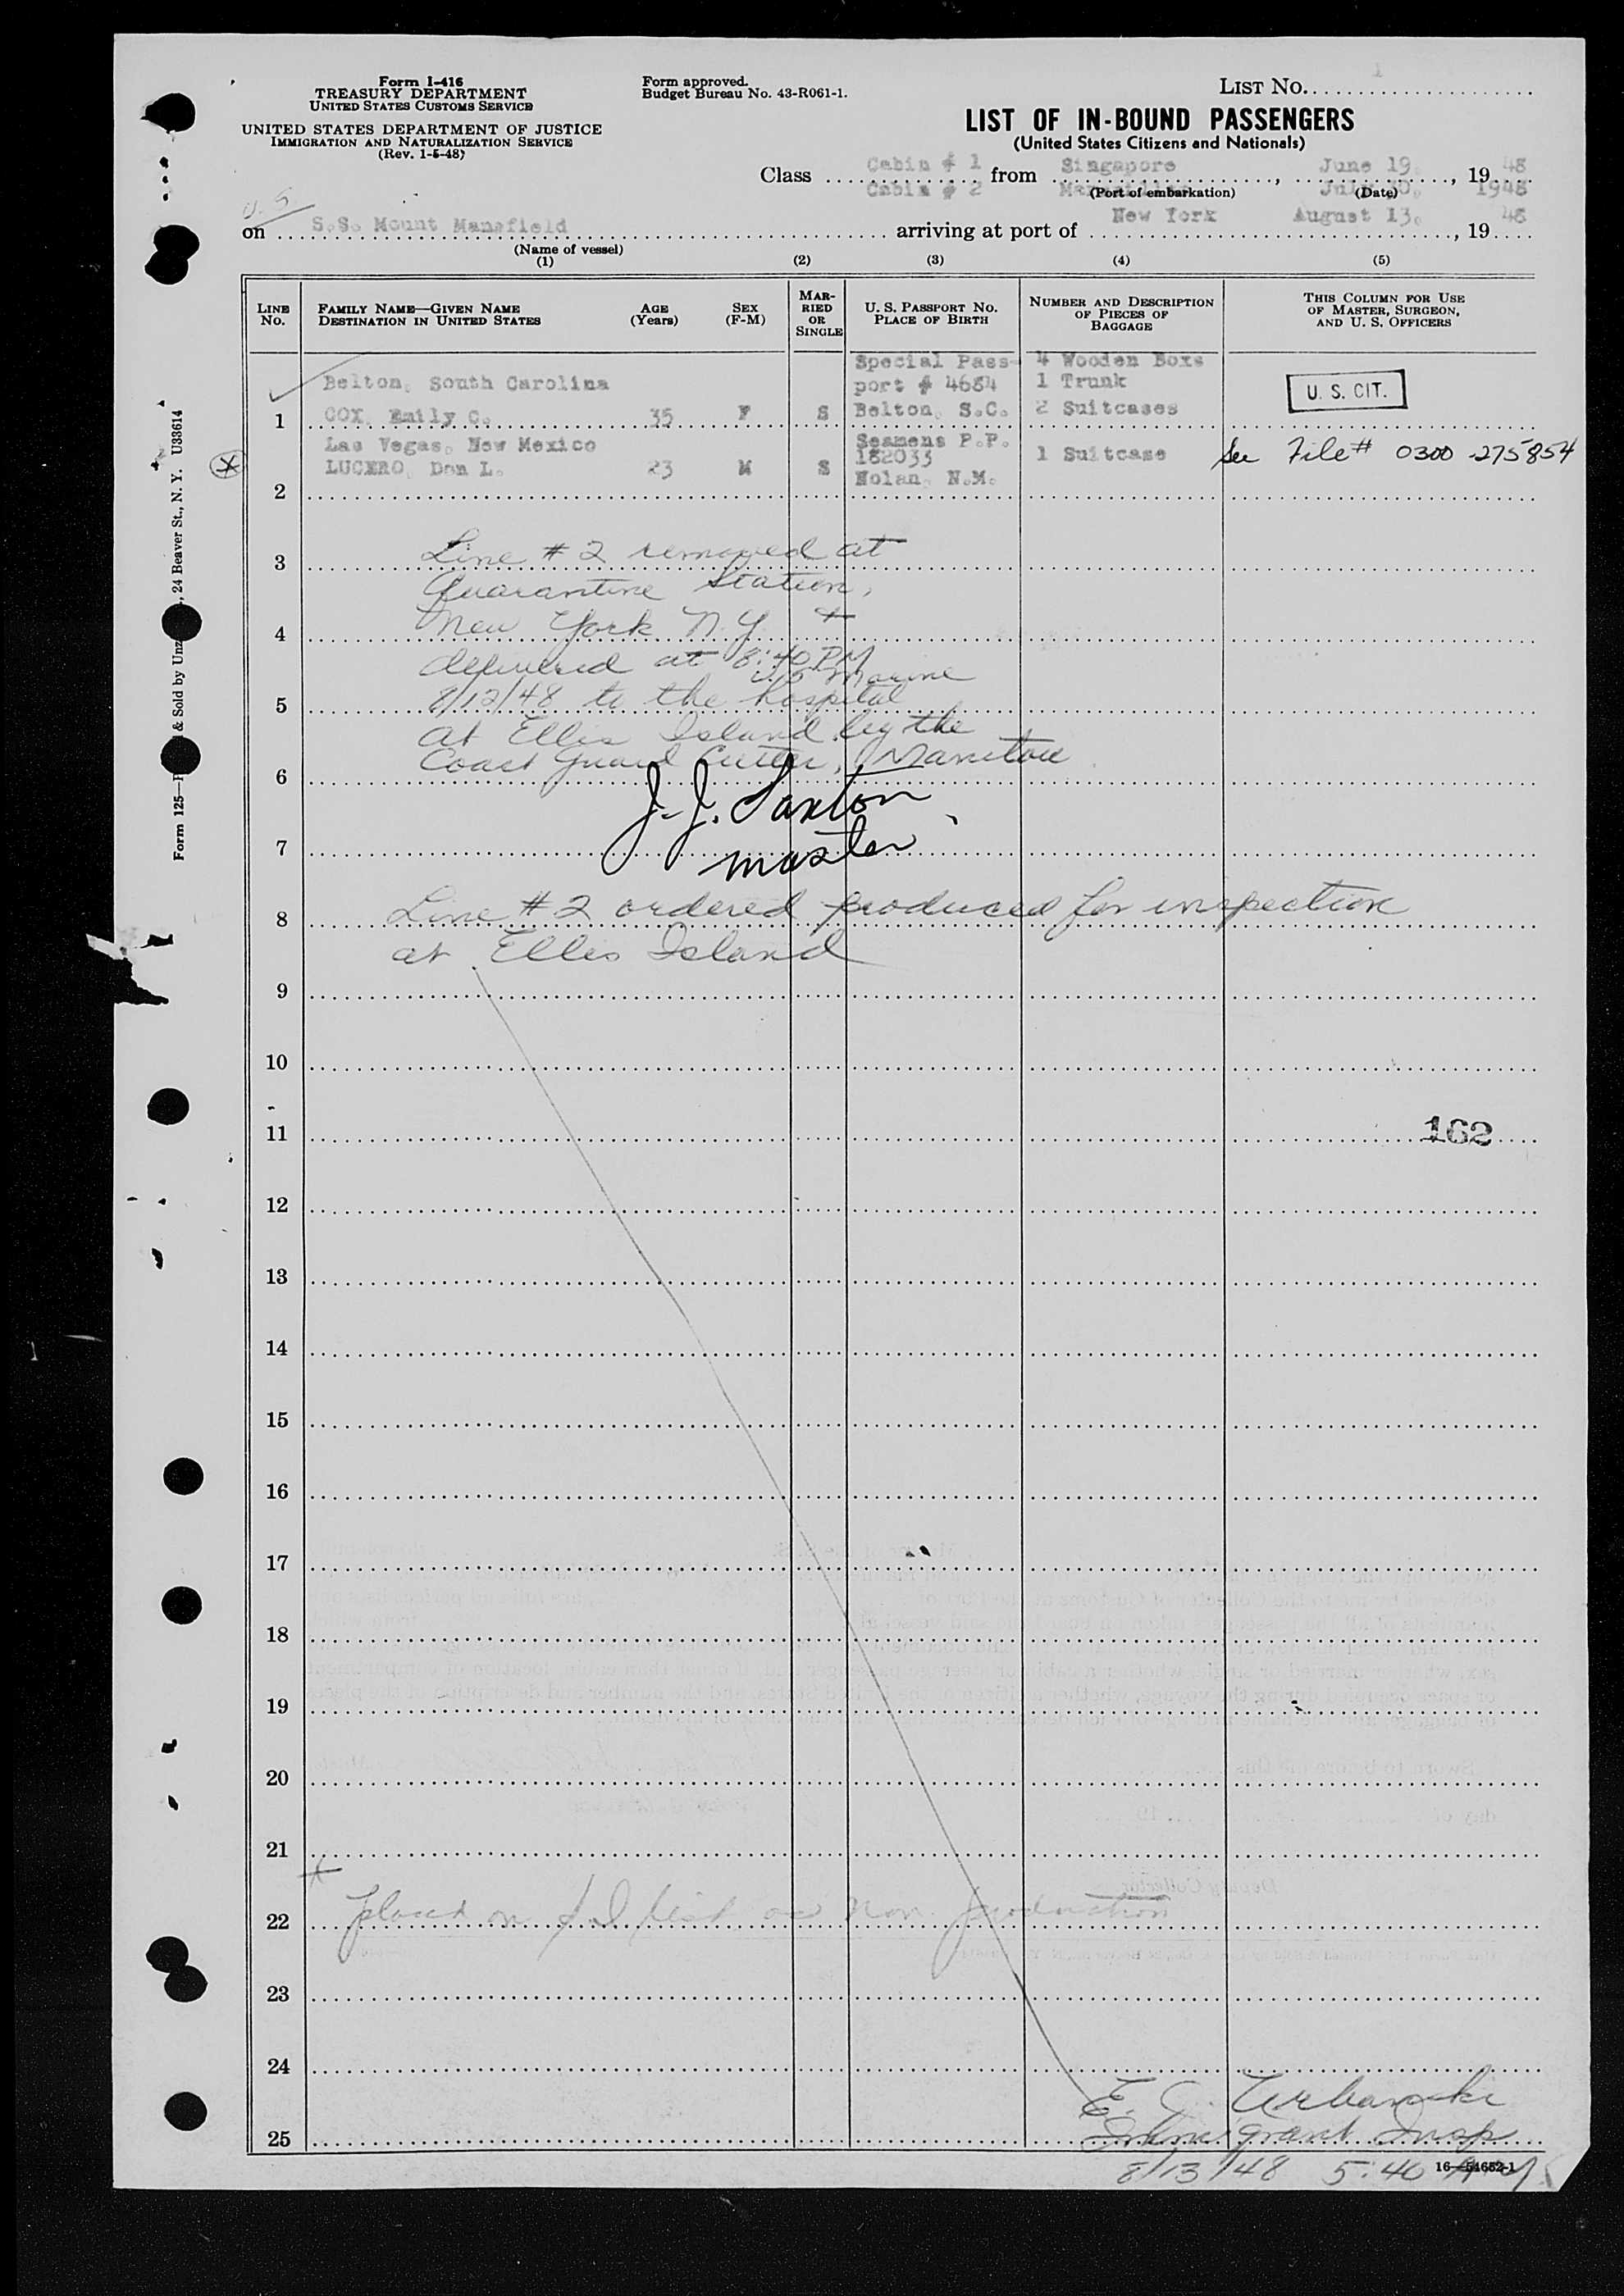 Form I-416
TREASURY DEPARTMENT
UNITED STATES CUSTOMS SERVICE
UNITED STATES DEPARTMENT OF JUSTICE
IMMIGRATION AND NATURALIZATION SERVICE
(Rev. 1-5-48)
Form approved.
Budget Bureau No. 43-R061-1.
LIST NO. 1
LIST OF IN-BOUND PASSENGERS
(United States Citizens and Nationals)
Class Cabin # 1 from Singapore, June 19, 1948
Cabin # 2 July 30, 1948
(Port of embarkation) (Date)
U.S.
on S.S. Mount Mansfield arriving at port of New York August 13, 1948
(Name of vessel)
(1) (2) (3) (4) (5)
LINE NO.
FAMILY NAME—GIVEN NAME
DESTINATION IN UNITED STATES
AGE (Years)
SEX (F-M)
MARRIED OR SINGLE
U. S. PASSPORT NO.
PLACE OF BIRTH
NUMBER AND DESCRIPTION OF PIECES OF BAGGAGE
THIS COLUMN FOR USE OF MASTER, SURGEON, AND U. S. OFFICERS
Special Pass- 4 Wooden Boxs
Belton, South Carolina port # 4684 1 Trunk U. S. CIT.
1 COX, Emily C. 35 F S Belton, S.C. 2 Suitcases
Las Vegas, New Mexico Seamens P.P.
LUCERO, Dan L. 23 M S 182033 1 Suitcase See File # 0300-275854
2 Nolan, N.M.
3 Line # 2 removed at
Quarantine Station,
4 New York N.Y. +
delivered at 8:40 PM
5 8/12/48 to the U.S. Marine hospital
at Ellis Island by the
6 Coast Guard Cutter, Manitou
J. J. Saxton
7 master
8 Line # 2 ordered produced for inspection
at Ellis Island
9
10
11 162
12
13
14
15
16
17
18
19
20
21
22 placed on list as non production
23
24
E. J. Urbanski
25 Immigrant Insp
8/13/48 5:40
16—54652-1
Form 125— & Sold by Unz , 24 Beaver St., N. Y. U38614